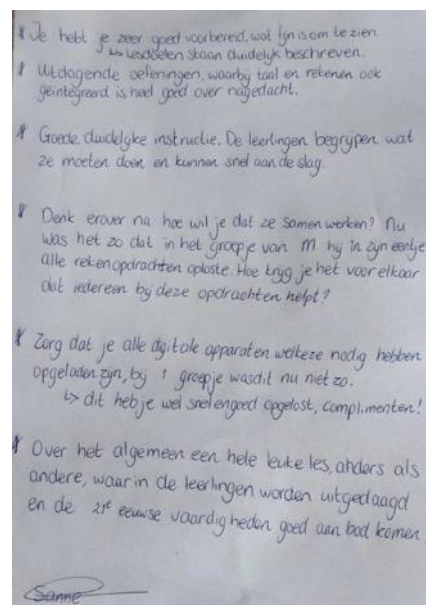 * Je hebt je zeer goed voorbereid, wat fijn is om te zien.
↳ Lesdoelen staan duidelijk beschreven.
* Uitdagende oefeningen, waarbij taal en rekenen ook
geïntegreerd is heel goed over nagedacht.
* Goede, duidelijke instructie. De leerlingen begrijpen wat
ze moeten doen en kunnen snel aan de slag
* Denk erover na hoe wil je dat ze samen werken? Nu
was het zo dat in het groepje van M hij in zijn eentje
alle reken opdrachten oploste. Hoe krijg je het voor elkaar
dat iedereen bij deze opdrachten helpt?
* Zorg dat je alle digitale apparaten welke ze nodig hebben
opgeladen zijn, bij 1 groepje was dit nu niet zo.
↳ dit heb je wel snel en goed opgelost, complimenten!
* Over het algemeen een hele leuke les, anders als
andere, waar in de leerlingen worden uitgedaagd
en de 21e eeuwse vaardigheden goed aan bod komen.
Sanne